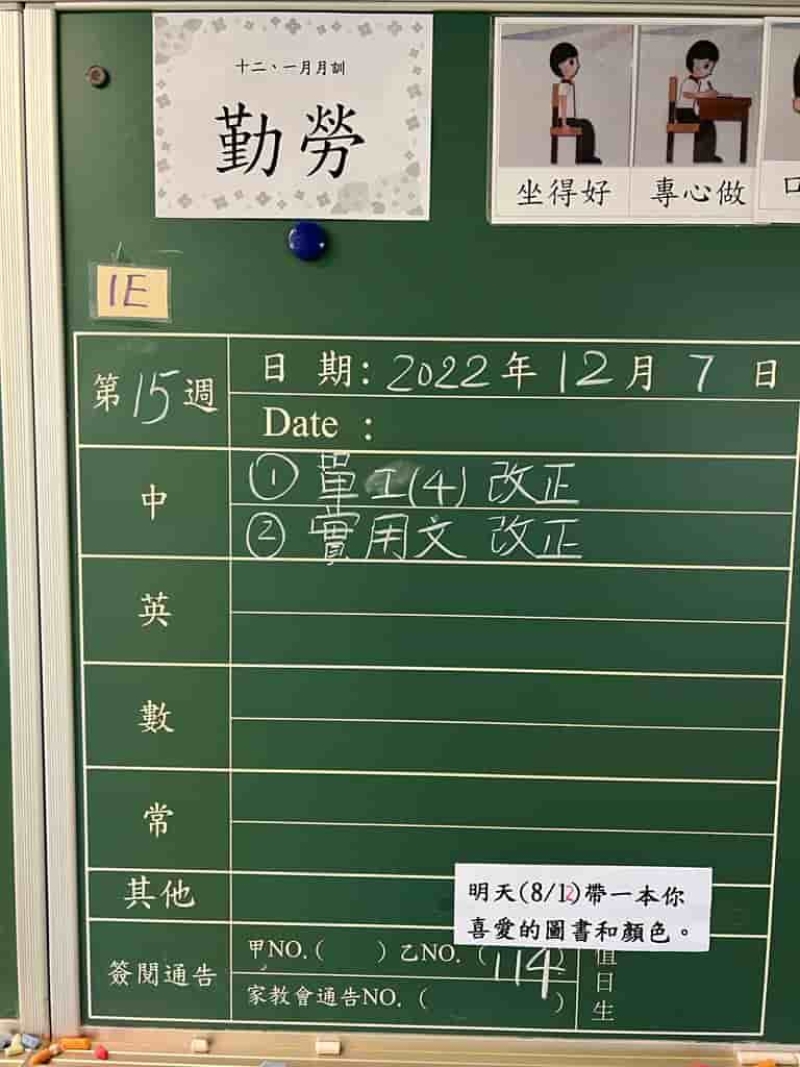 十二、一月月訓
勤勞
坐得好
專心做
口
1E
第15週
日 期: 2022年12月7日
Date :
中
① 單工(4) 改正
② 實用文 改正
英
數
常
其他
明天(8/12)帶一本你
喜愛的圖書和顏色。
簽閱通告
甲NO.( ) 乙NO.( 114 )
家教會通告NO.( )
值日生